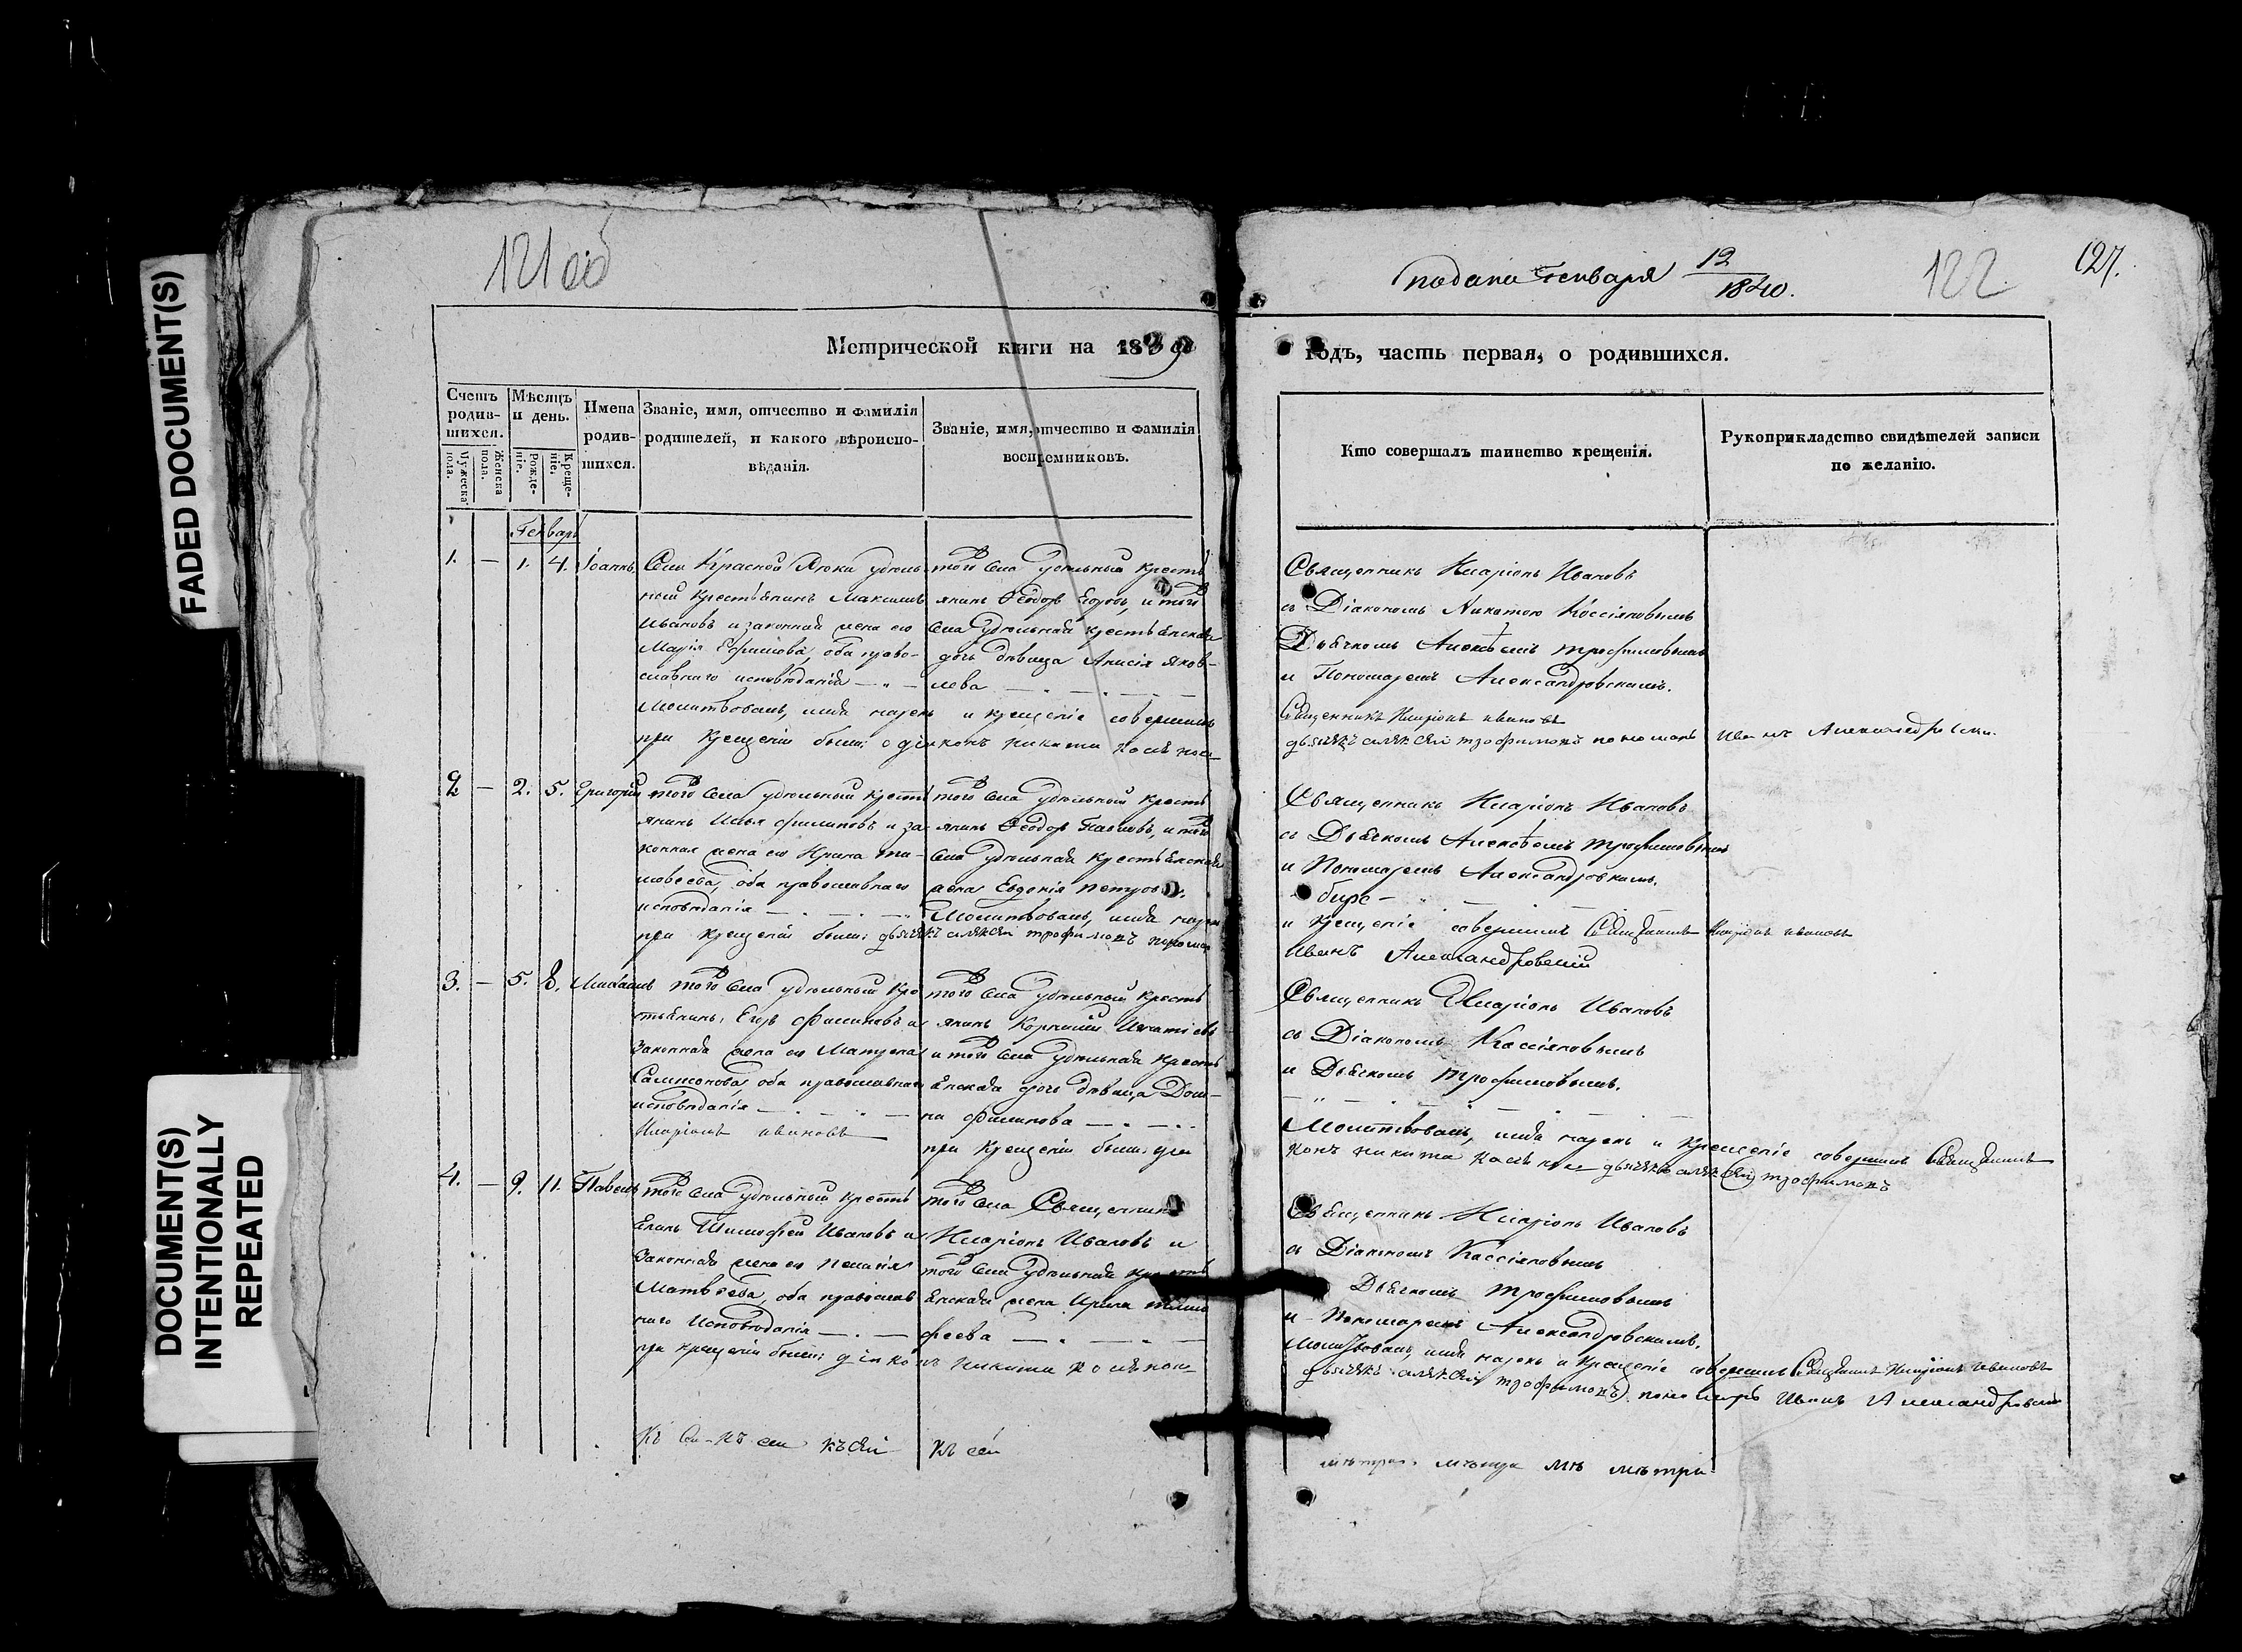 FADED DOCUMENT(S)
DOCUMENT(S)
INTENTIONALLY
REPEATED
121 об
подана Генваря 12/1840.
122
127.
Метрической книги на 1839
годъ, часть первая, о родившихся.
Счетъ родив-шихся.
Мужеска пола.
Женска пола.
Мѣсяцъ и день.
Рожде-ніе.
Креще-ніе.
Имена родив-шихся.
Званіе, имя, отчество и фамилія
родителей, и какого вѣроиспо-
вѣданія.
Званіе, имя, отчество и фамилія
воспремниковъ.
Кто совершалъ таинство крещенія.
Рукоприкладство свидѣтелей записи
по желанію.
Генварь
1. — 1. 4. Іоаннъ
Села Красной Луки удѣль
ный крестьянинъ Максимъ
Ивановъ и законная жена его
Марія Ефимова, оба право-
славнаго исповѣданія —
того села удѣльный кресть
янинъ Ѳеодоръ Егоровъ, и того
села удѣльная крестьянская
дочь дѣвица Анисія Яков-
лева
Священникъ Иларіонъ Ивановъ
съ Діакономъ Никитою Кассіановымъ
Дьячкомъ Алексѣемъ Трофимовымъ
и Пономаремъ Александровскимъ.
Молитвовалъ, имя нарекъ и крещеніе совершилъ
Священникъ Иларіонъ Ивановъ
при крещеніи были: діаконъ Никита
дьячекъ Алексѣй Трофимовъ пономарь Иванъ Александровскій
2 — 2. 5. Григорій
того села удѣльный кресть
янинъ Илья Филиповъ и за
конная жена его Ирина Ти-
моѳеева, оба православнаго
исповѣданія —
того села удѣльный кресть
янинъ Ѳеодоръ Павловъ, и того
села удѣльная крестьянская
жена Евдокія Петрова.
Священникъ Иларіонъ Ивановъ
съ Дьячкомъ Алексѣемъ Трофимовымъ
и Пономаремъ Александровскимъ.
Молитвовалъ, имя нарекъ
и крещеніе совершилъ Священникъ Иларіонъ Ивановъ
при крещеніи были: дьячекъ Алексѣй Трофимовъ пономарь
Иванъ Александровскій
3. — 5. 8. Михаилъ
того села удѣльный кре
стьянинъ, Егоръ Филиповъ и
законная жена его Матрена
Самсонова, оба православнаго
исповѣданія —
того села удѣльный кресть
янинъ Корнилій Игнатіевъ
и того села удѣльная кресть
янская дочь дѣвица Дом-
на Филипова
Священникъ Иларіонъ Ивановъ
съ Діакономъ Кассіановымъ
и Дьячкомъ Трофимовымъ.
Молитвовалъ, имя нарекъ и крещеніе совершилъ Священникъ
Иларіонъ Ивановъ
при крещеніи были: діа
конъ Никита дьячекъ Алексѣй Трофимовъ
4. — 9. 11. Павелъ
того села удѣльный кресть
янинъ Тимофей Ивановъ и
законная жена его Пелагія
Матвѣева, оба православ
наго исповѣданія —
того села Священникъ
Иларіонъ Ивановъ и
того села удѣльная кресть
янская жена Ирина Тимо
феева
Священникъ Иларіонъ Ивановъ
съ Діакономъ Кассіановымъ
Дьячкомъ Трофимовымъ
и Пономаремъ Александровскимъ.
Молитвовалъ, имя нарекъ и крещеніе совершилъ Священникъ Иларіонъ Ивановъ
при крещеніи были: діаконъ Никита
дьячекъ Алексѣй Трофимовъ пономарь Иванъ Александровскій
Къ сей